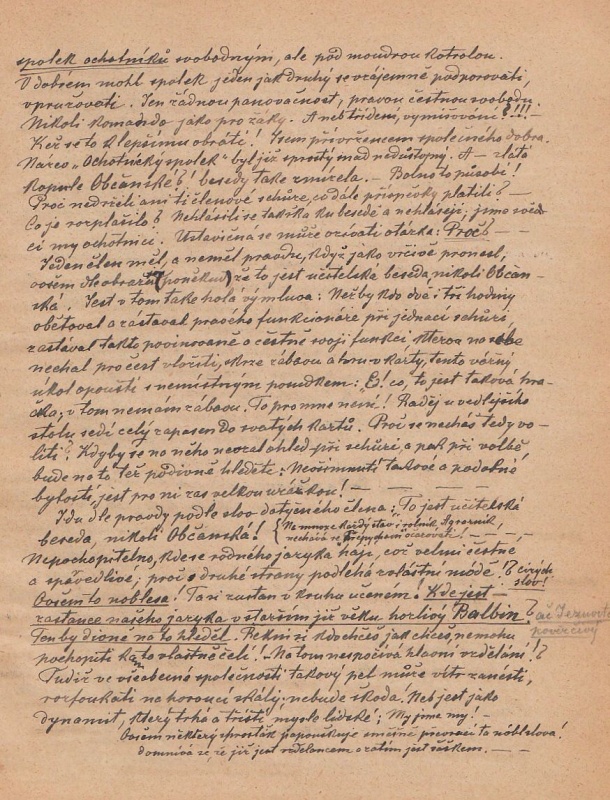 spolek ochotníků svobodným, ale pod moudrou kotrolou.
V dobrém mohl spolek jeden jak druhý se vzájemně podporovati,
vpružovati. Jen žádnou panovačnost, pravou čestnou svobodu.
Nikoli komando jako pro žáky. A neb třídění, vymisování?!!!-
Kéž se to k lepšímu obrátí! Jsem přívržencem společného dobra.
Nářeo „Ochotnický spolek" byl již sprostý snad nedůstojný. A — zlatá
kopule Občanské! besedy také zmizela. — Bolno to působí!
Proč nedrželi ani ti členové schůze, co dále příspěvky platili? —
Co je rozplašilo? Nehlásili se takřka ku besedě a nehlásejí; jsme svěd-
ci my ochotníci. Ustavičná se může ozívati otázka: Proč? — —
Jeden člen měl, a neměl pravdu, když jako vrčivě pronesl,
ovšem že obrazil (poněkud) že to jest učitelská beseda, nikoli Občan-
ská. Jest v tom také holá výmluva: Než by kdo dvě i tři hodiny
obětoval a zástával pravého funkcionáře při jednací schůzi
zastával takto povinované a čestné svoji funkci kterou na sebe
nechal pročest vložiti, skrze zábavu a hru v karty, tento vážný
úkol opouští s nemístným poudkem: E! co, to jest taková hra-
čka; v tom nemám zábavu. To pro mne není! Raděj u vedlejšího
stolu sedí celý zapasen do svatých kartiš. Proč se necháš tedy vo-
liti? Kdyby se na něho nevzal ohled při schůzi, a pak při volbě
bude na to též podivně hleděti: Nevšimnutí takové a podobné
bytosti, jest pro ni zas velkou urážkou! — — — —
Jdu dle pravdy podle slov dotyčného člena: „To jest učitelská
beseda, nikoli Občanská! {Ne můze každý stav i rolník, Agrarník,
nechati se očarovati. — . — —
Nepochopitelno, kde se rodného jazyka hájí, což velmi čestné
a spávedlivé; proč s druhé strany podléhá zvláštní módě? cizích
slov!
Ovšem to noblesa! Ta si zůstan v kruhu učeném! Kde jest —
zastánce našeho jazyka v starším již věku horlivý Balbin?
ač Jezuvita
povrživý
Ten by divně na to hleděl. Řekni si kdo chceš jak chceš, nemohu
pochopiti kam to vlastně čelí! Na tom nespočívá hlavní vzdělání!?
Tudíž ve všeobecné společnosti takový pel může vítr zanésti,
rozfoukati na horoucí skály; nebude škoda. Neb jest jako
dynamit, který trhá a tříští mysle lidské; My jsme my! —
Ovšem některý sprosťák papouškuje směšně převrací ta nóbl slova!
domnívá se, že již jest vzdělancem a zatím jest šaškem. — —